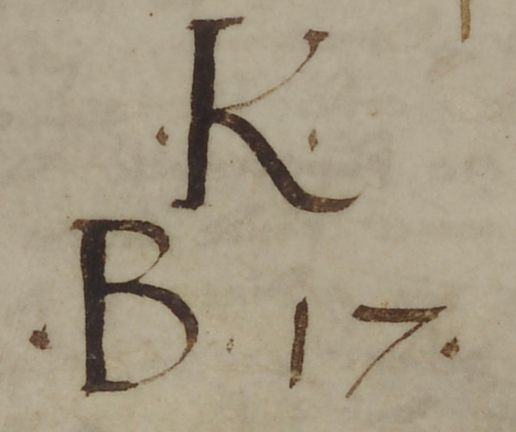 · K ·
· B · 17 ·